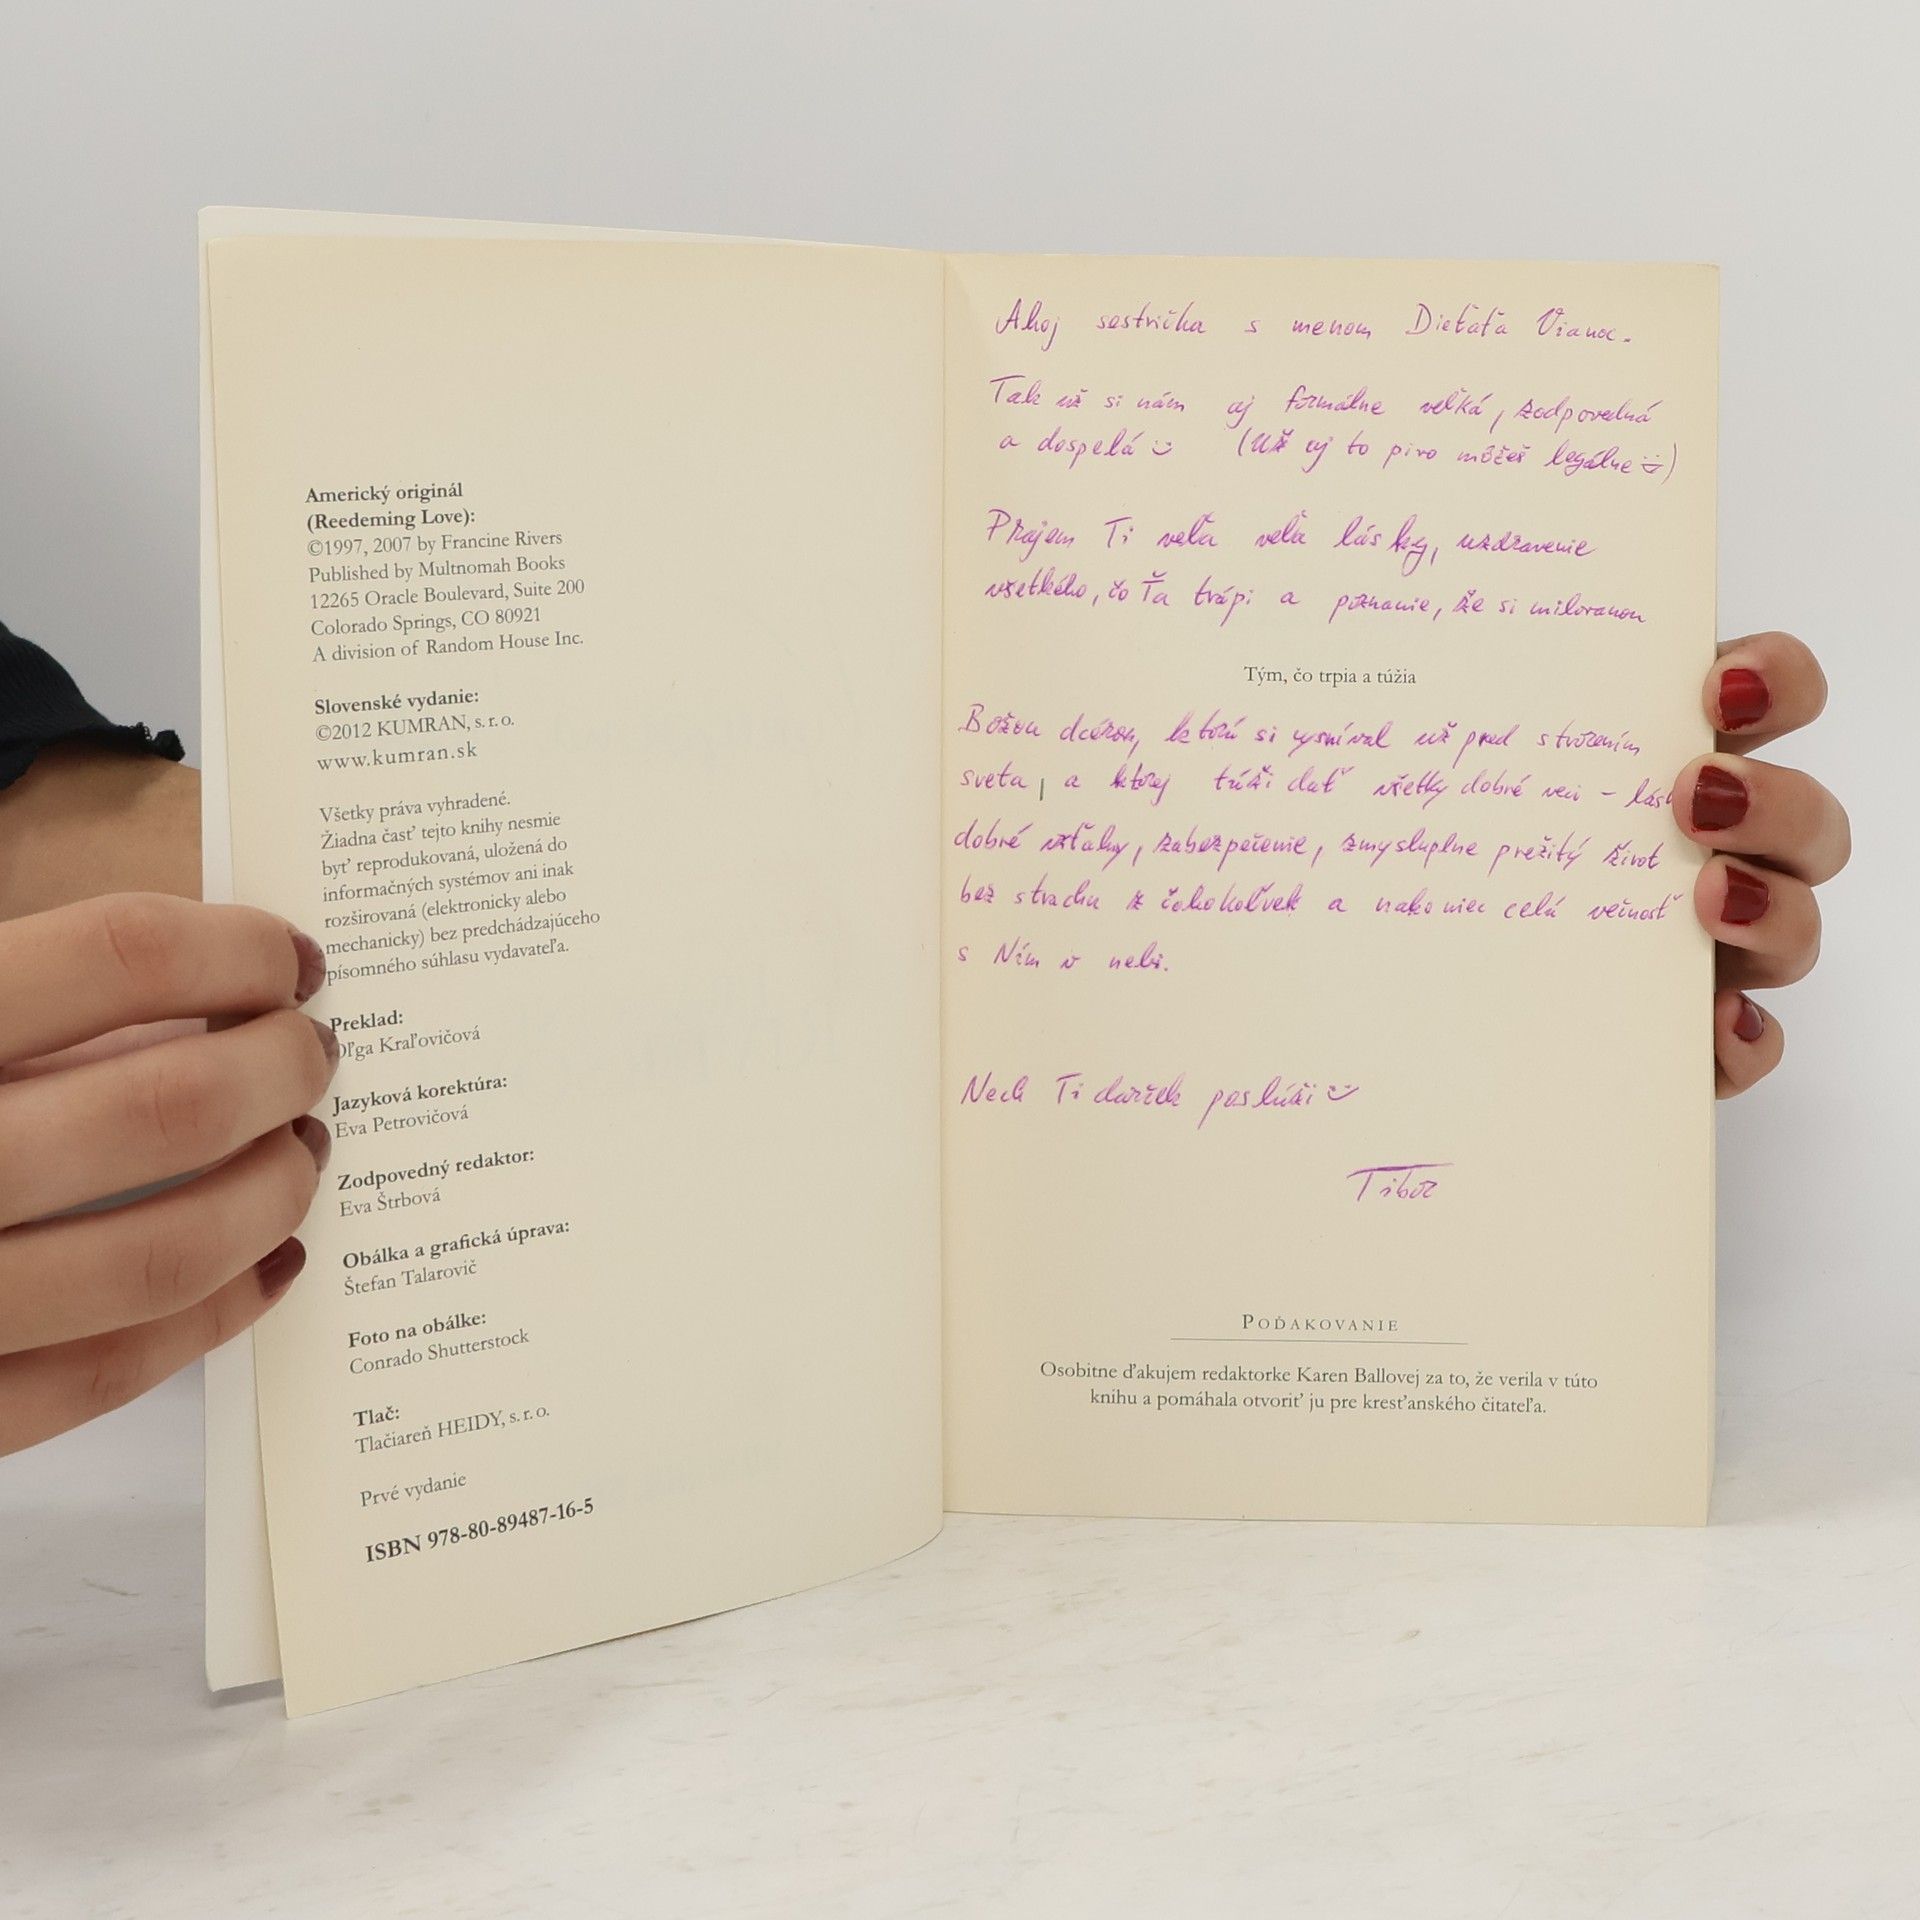 Americký originál
(Reedeming Love):
©1997, 2007 by Francine Rivers
Published by Multnomah Books
12265 Oracle Boulevard, Suite 200
Colorado Springs, CO 80921
A division of Random House Inc.
Slovenské vydanie:
©2012 KUMRAN, s. r. o.
www.kumran.sk
Všetky práva vyhradené.
Žiadna časť tejto knihy nesmie
byť reprodukovaná, uložená do
informačných systémov ani inak
rozširovaná (elektronicky alebo
mechanicky) bez predchádzajúceho
písomného súhlasu vydavateľa.
Preklad:
Oľga Kraľovičová
Jazyková korektúra:
Eva Petrovičová
Zodpovedný redaktor:
Eva Štrbová
Obálka a grafická úprava:
Štefan Talarovič
Foto na obálke:
Conrado Shutterstock
Tlač:
Tlačiareň HEIDY, s. r. o.
Prvé vydanie
ISBN 978-80-89487-16-5
Ahoj sestrička s menom Dieťaťa Vianoc.
Tak už si nám aj formálne veľká, zodpovedná
a dospelá (Už aj to pivo môžeš legálne )
Prajem Ti veľa veľa lásky, uzdravenie
všetkého, čo Ťa trápi a poznanie, že si milovanou
Tým, čo trpia a túžia
Božou dcérou, ktorú si vysníval už pred stvorením
sveta, a ktorej túži dať všetky dobré veci -
dobré vzťahy, zabezpečenie, zmysluplne prežitý život
bez strachu z čohokoľvek a nakoniec celú večnosť
s Ním v nebi.
Nech Ti darček poslúži
Tibor
POĎAKOVANIE
Osobitne ďakujem redaktorke Karen Ballovej za to, že verila v túto
knihu a pomáhala otvoriť ju pre kresťanského čitateľa.